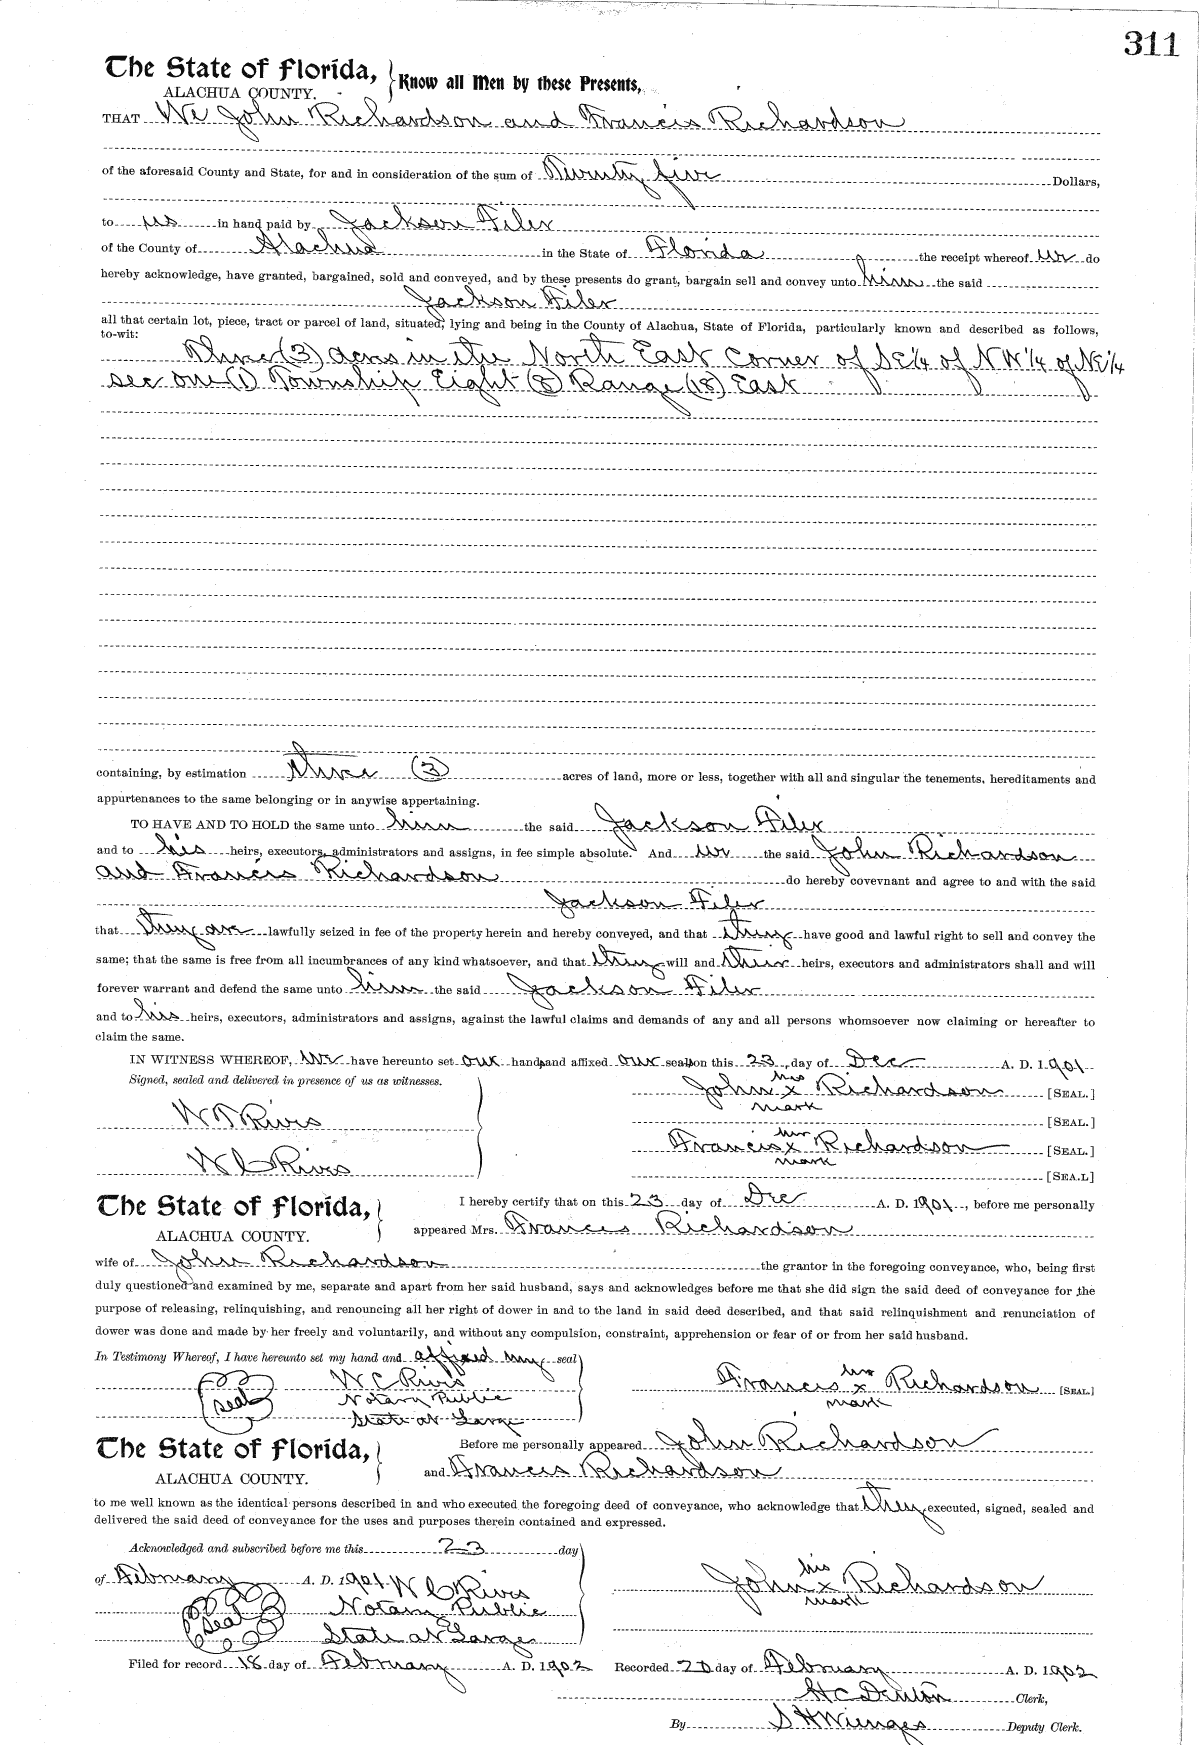 311
The State of Florida, } Know all Men by these Presents,
ALACHUA COUNTY.
THAT We John Richardson and Francis Richardson
of the aforesaid County and State, for and in consideration of the sum of Twenty five Dollars,
to us in hand paid by Jackson Filer
of the County of Alachua in the State of Florida the receipt whereof we do
hereby acknowledge, have granted, bargained, sold and conveyed, and by these presents do grant, bargain sell and convey unto him the said
Jackson Filer
all that certain lot, piece, tract or parcel of land, situated, lying and being in the County of Alachua, State of Florida, particularly known and described as follows,
to-wit:
Three (3) acres in the North East Corner of SE¼ of NW¼ of NE¼
sec one (1) Township Eight (8) Range (18) East
containing, by estimation three (3) acres of land, more or less, together with all and singular the tenements, hereditaments and
appurtenances to the same belonging or in anywise appertaining.
TO HAVE AND TO HOLD the same unto him the said Jackson Filer
and to his heirs, executors, administrators and assigns, in fee simple absolute. And we the said John Richardson
and Francis Richardson do hereby covevnant and agree to and with the said
Jackson Filer
that they are lawfully seized in fee of the property herein and hereby conveyed, and that they have good and lawful right to sell and convey the
same; that the same is free from all incumbrances of any kind whatsoever, and that they will and their heirs, executors and administrators shall and will
forever warrant and defend the same unto him the said Jackson Filer
and to his heirs, executors, administrators and assigns, against the lawful claims and demands of any and all persons whomsoever now claiming or hereafter to
claim the same.
IN WITNESS WHEREOF, We have hereunto set our hands and affixed our seals on this 23 day of Dec A. D. 1901
Signed, sealed and delivered in presence of us as witnesses.
his
John x Richardson [SEAL.]
mark
W T Rivis [SEAL.]
her
Francis x Richardson [SEAL.]
mark
W C Rivis [SEAL]
The State of Florida, } I hereby certify that on this 23 day of Dec A. D. 1901, before me personally
ALACHUA COUNTY. appeared Mrs. Francis Richardson
wife of John Richardson the grantor in the foregoing conveyance, who, being first
duly questioned and examined by me, separate and apart from her said husband, says and acknowledges before me that she did sign the said deed of conveyance for the
purpose of releasing, relinquishing, and renouncing all her right of dower in and to the land in said deed described, and that said relinquishment and renunciation of
dower was done and made by her freely and voluntarily, and without any compulsion, constraint, apprehension or fear of or from her said husband.
In Testimony Whereof, I have hereunto set my hand and affixed my seal
her
W C Rivis Francis x Richardson [SEAL.]
seal Notary Public mark
State at Large
The State of Florida, } Before me personally appeared John Richardson
ALACHUA COUNTY. and Francis Richardson
to me well known as the identical persons described in and who executed the foregoing deed of conveyance, who acknowledge that they executed, signed, sealed and
delivered the said deed of conveyance for the uses and purposes therein contained and expressed.
Acknowledged and subscribed before me this 23 day
his
of February A. D. 1901 W C Rivis John x Richardson
mark
seal Notary Public
State at Large
Filed for record 18 day of February A. D. 1902 Recorded 20 day of February A. D. 1902
H C Denton Clerk,
By S H Wienges Deputy Clerk.